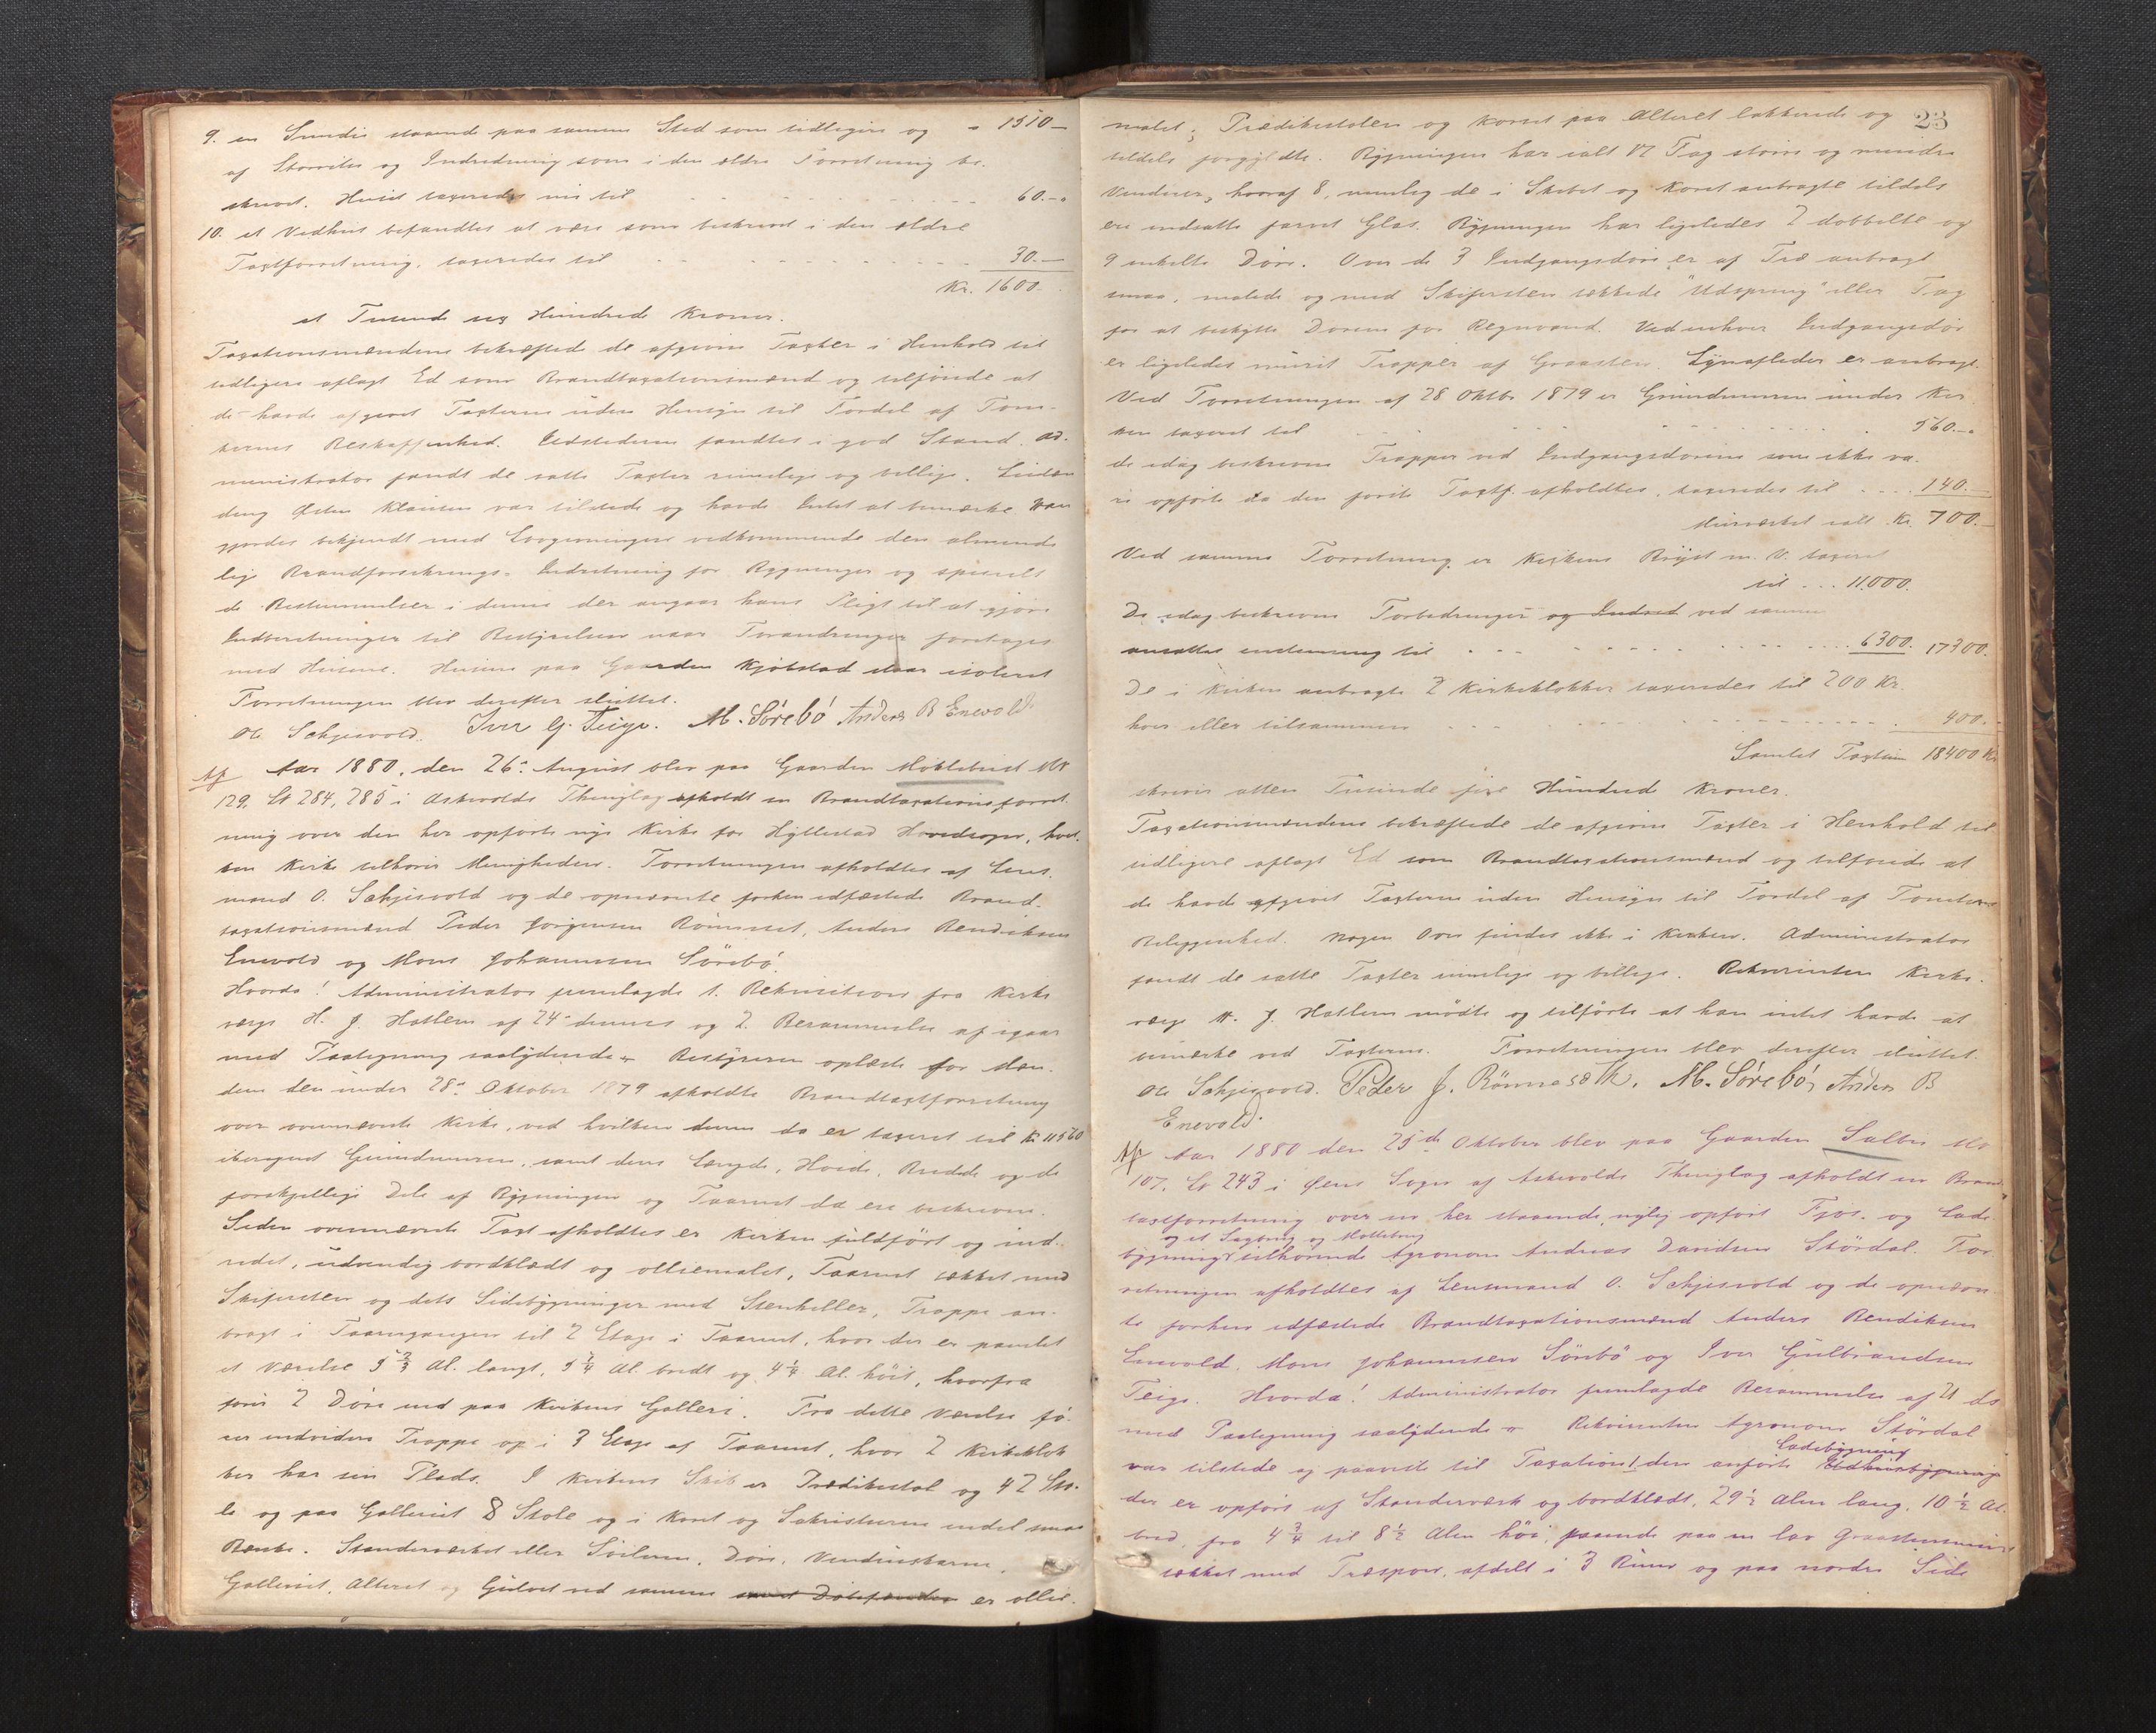 9. en Smidie staaende paa samme Sted som tidligere og " 1510 –
af Størrelse og Indredning som i den ældre Forretning be-
skrevet. Huset taxeredes nu til 60. – "
10. et Vedhus befandtes at være som beskrevet i den ældre
Taxtforretning, taxeredes til 30. –
Kr. 1600. –
et Tusende sex Hundrede Kroner.
Taxationsmændene bekræftede de afgivne Taxter i Henhold til
tidligere aflagt Ed som Brandtaxationsmænd og tilføiede at
de havde afgivet Taxterne uden Hensyn til Fordel af Tom-
ternes Beskaffenhed. Ildstederne fandtes i god Stand. Ad-
ministrator fandt de satte Taxter rimelige og billige.
Klausen var tilstede og havde Intet at bemærke. Han
gjordes bekjendt med Lovgivningen vedkommende den alminde-
lige Brandforsikrings-Indretning for Bygninger og specielt
de Bestemmelser i denne der angaar hans Pligt til at gjøre
Indberetninger til Bestyrelsen naar Forandringer foretages
med Husene. Husene paa Gaarden Kjølstad staar isoleret
Forretningen blev derefter sluttet.
Ole Schjesvold. Iver G. Teige. M. Sørebö Anders B Enevold
Af Aar 1880, den 26de August blev paa Gaarden Møklebust Mt
129. Lt 284, 285 i Askvolds Thinglag afholdt en Brandtaxationsforret-
ning over den her opførte nye Kirke for Hyllestad Hovedsogn, hvil-
ken Kirke tilhører Menigheden. Forretningen afholdtes af Lens-
mand O. Schjesvold og de opnævnte forhen edfæstede Brand-
taxationsmænd Peder Jørgensen Rönneset, Anders Bendiksen
Enevold og Mons Johannessen Sörebö.
Hvorda! Administrator fremlagde 1. Rekvisition fra Kirke-
værge H. J. Hatlem af 24de dennes og 2. Berammelse af igaar
med Paategning saalydende Bestyreren oplæste for Mæn-
dene den under 28de Oktober 1879 afholdte Brandtaxtforretning
over ovennævnte Kirke, ved hvilken denne da er taxeret til Kr. 11560
iberegnet Grundmuren, samt dens Længde, Høide, Bredde og de
forskjellige Dele af Bygningen og Taarnet da ere beskrevne.
Siden ovennævnte Taxt afholdtes er Kirken fuldført og ind-
redet, udvendig bordklædt og oliemalet, Taarnet tækket med
Skifersten og dets Sidebygninger med Stenheller, Trappe an-
bragt i Taarngangen til 2 Etage i Taarnet, hvor der er panelet
et Værelse 5 2/3 Al. langt, 5 3/4 Al. bredt og 4 1/4 Al. høit, hvorfra
fører 2 Døre ind paa Kirkens Galleri. Fra dette Værelse fø-
rer endvidere Trappe op i 3 Etage af Taarnet, hvor 2 Kirkeklok-
ker har sin Plads. I Kirkens Skib er Prædikestol og 42 Sto-
le og paa Galleriet 8 Stole og i Koret og Sakristierne endel smaa
Bænke. Standerværket eller Søilerne, Döre, Vindueskarme,
Galleriet, Alteret og Gulvet ved samme er ollie-
23
malet; Prædikestolen og Korset paa Alteret lakkerede og
tildels forgyldte. Bygningen har ialt 17 Fag større og mindre
Vinduer, hvoraf 8, nemlig de i Skibet og Koret anbragte tildels
ere indsatte farvet Glas. Bygningen har ligeledes 2 dobbelte og
9 enkelte Döre. Over de 3 Indgangsdøre er af Træ anbragt
smaa, malede og med Skifersten tækkede "Udspring" eller Tag
for at beskytte Dørene for Regnvand. Ved enhver Indgangsdør
er ligeledes muret Trapper af Graasten. Lynafleder er anbragt.
Ved Forretningen af 28 Oktbr 1879 er Grundmuren under Kir-
ken taxeret til 560. – "
de idag beskrevne Trapper ved Indgangsdørene som ikke va-
re opførte da den forrite Taxtf. afholdtes, taxeredes til 140. –
Murværket ialt Kr. 700. –
Ved samme Forretning er Kirkens Bygst m. V. taxeret
til 11000.
De idag beskrevne Forbedringer og Indred ved samme
ansattes enstemmig til 6300. 17300.
De i Kirken anbragte 2 Kirkeklokker taxeredes til 200 Kr.
hver eller tilsammen 400. –
Samlet Taxtsum 18400 Kr
skriver atten Tusinde fire Hundred Kroner.
Taxationsmændene bekræftede de afgivne Taxter i Henhold til
tidligere aflagt Ed som Brandtaxationsmænd og tilføiede at
de havde afgivet Taxterne uden Hensyn til Fordel af Tomternes
Beliggenhed. Nogen Ovn findes ikke i Kirken. Administrator
fandt de satte Taxter rimelige og billige. Rekvirenten Kirke-
værge H. J. Hatlem mødte og tilførte at han intet havde at
bemærke ved Taxterne. Forretningen blev derefter sluttet.
Ole Schjesvold. Peder J. Rönneseth. M. Sörebö, Anders B
Enevold.
Af Aar 1880 den 25de Oktober blev paa Gaarden Salbu Mt
107. Lt 243 i Øens Sogn af Askvolds Thinglag afholdt en Brand-
taxtforretning over en her staaende nylig opført Fjøs- og Lade-
og et Sagbrug og Møllebrug
bygning tilhørende Agronom Andreas Davidsen Stördal. For-
retningen afholdtes af Lensmand O. Schjesvold og de opnævn-
te forhen edfæstede Brandtaxationsmænd Anders Bendiksen
Enevold, Mons Johannessen Sörebö og Iver Gulbrandsen
Teige. Hvorda! Administrator fremlagde Berammelse af 21 ds
med Paategning saalydende Rekvirenten Agronom Stördal
Ladebygning
var tilstede og paaviste til Taxation 1. den anførte Udhusbygning
der er opført af Standerværk og bordklædt, 29 1/2 Alen lang, 10 1/2 Al.
bred, fra 4 3/4 til 8 1/2 Alen høi, staaende paa en lav Graastensmur
tækket med Træspon, afdelt i 3 Rum og paa nordre Side